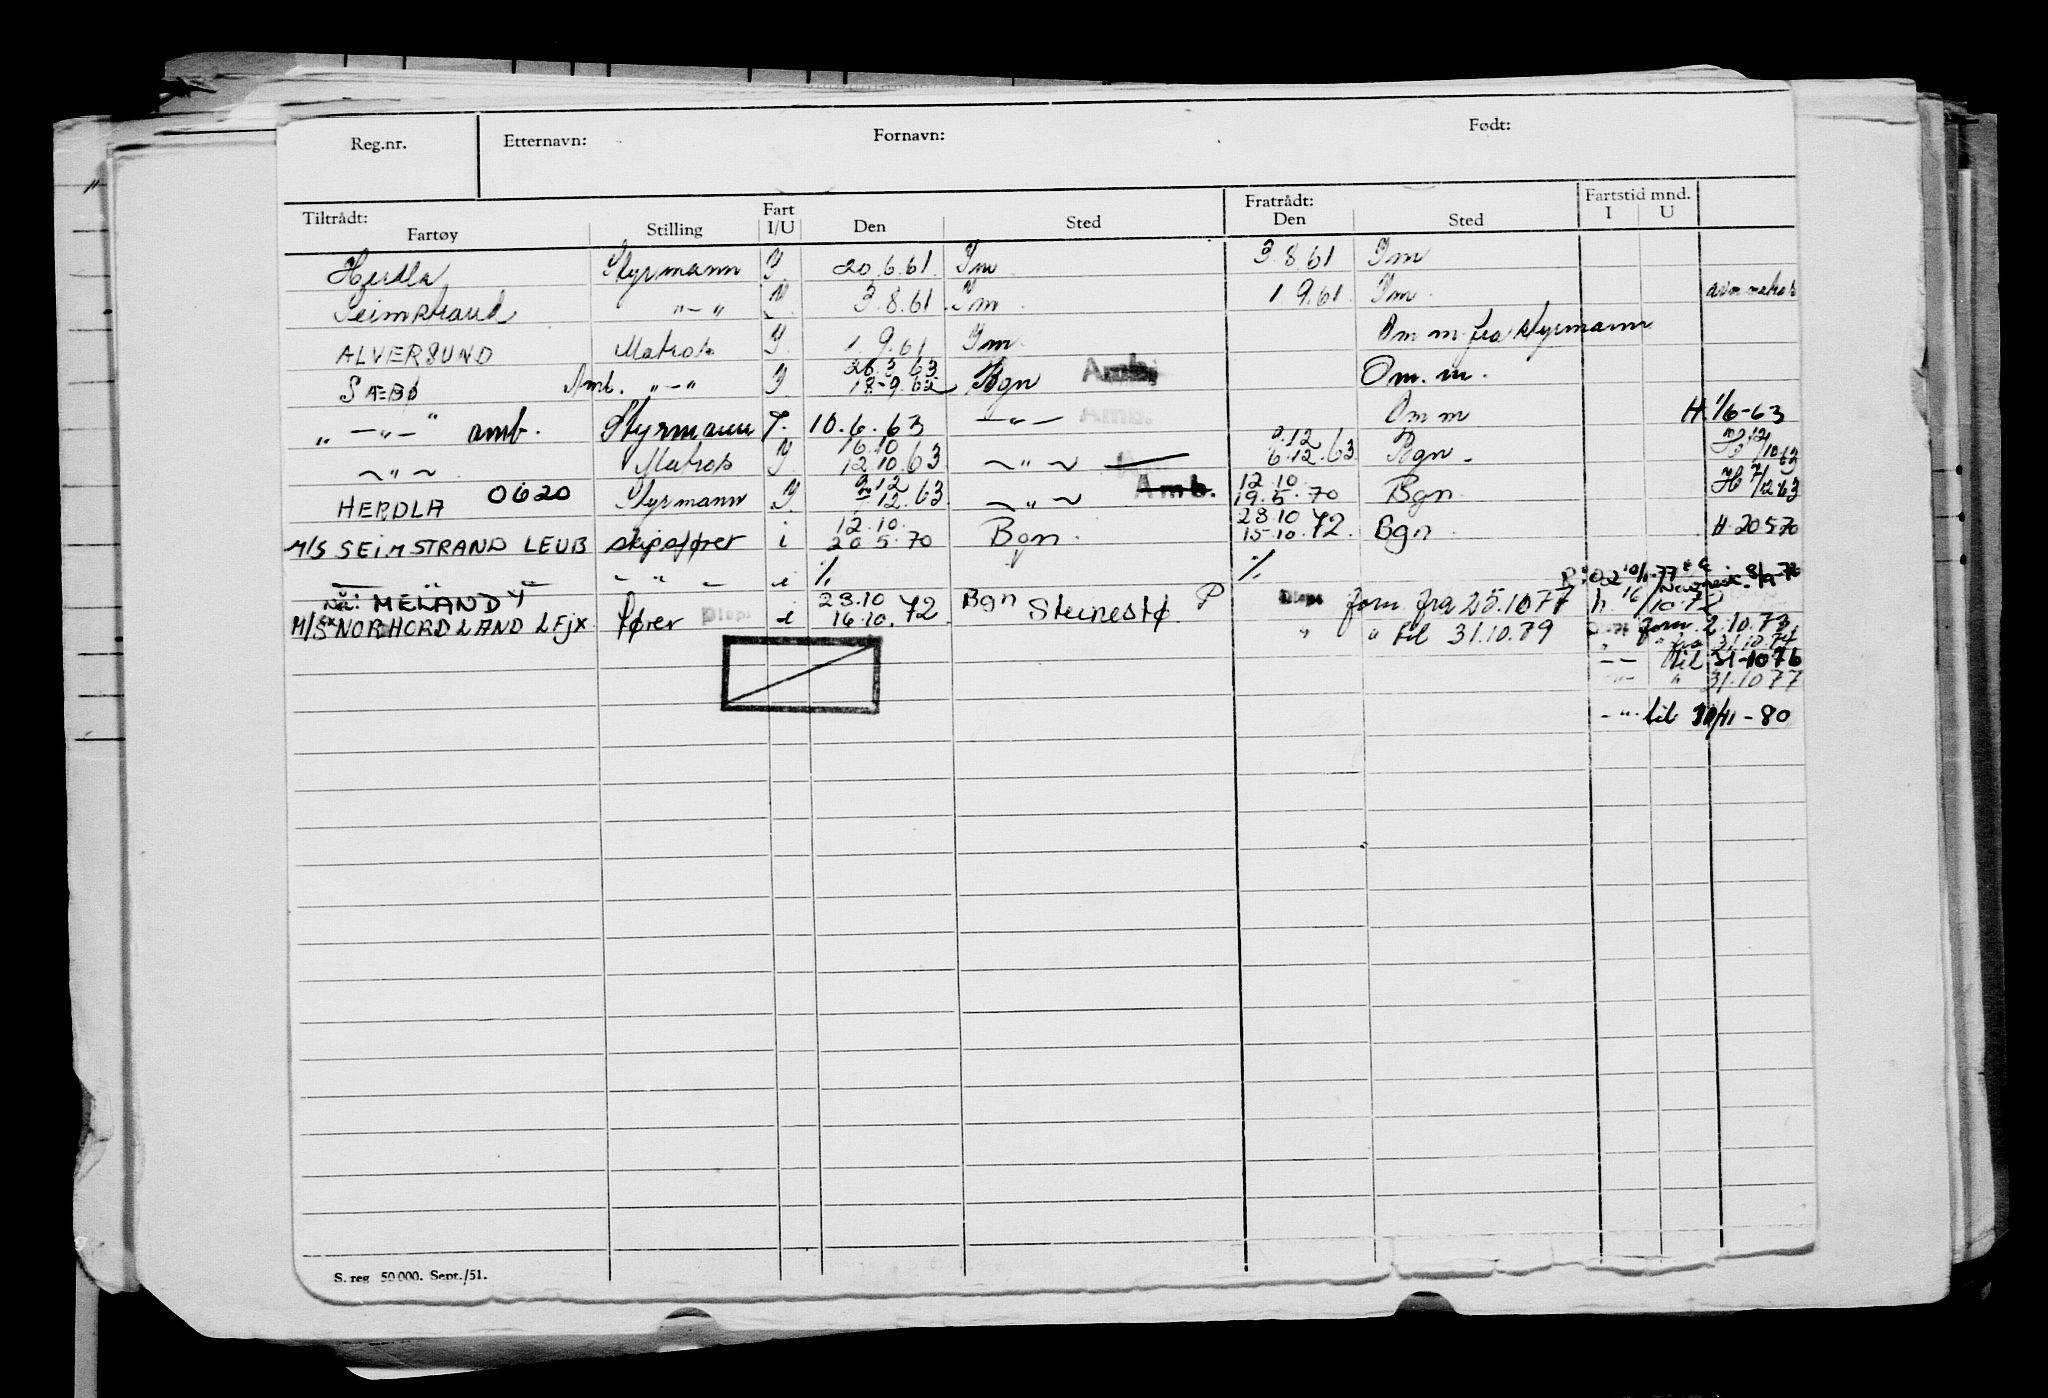 Reg.nr. Etternavn: Fornavn: Født:
Tiltrådt: Fart Fratrådt: Fartstid mnd.
Fartøy Stilling I/U Den Sted Den Sted I U
Herdla Styrmann I 20.6.61 Im 3.8.61 Im
Seimstrand "-" I 3.8.61 Im 1.9.61 Im
ALVERSUND Matros I 1.9.61 Im Om m fra styrmann
26.3.63
SÆBØ Amb. "-" I 18-9.62 Bgn Om. m.
" -"- " amb. Styrmann I. 10.6.63 -"- Amb. Om m H. 1/6-63
16.10 9.12
~ " ~ Matros I 12.10.63 ~ " ~ 6.12.63 Bgn. H /10 63
9.12 12.10
HERDLA 0620 Styrmann I 7.12.63 ~ " ~ Amb. 19.5.70 Bgn H 7/12 63
12.10 23.10
M/S SEIMSTRAND LEUB skipsfører i 20.5.70 Bgn. 15.10.72. Bgn H. 20.5.70
- " - - " - i % %
Nå: MELAND I 23.10 Bgn
M/S ex NORHORDLAND LFJX fører Disp. i 16.10.72 Steinestø P Disp. forn fra 25.10 77 h 16/10.72
" " til 31.10.79 forn. 2.10.73
" " fra 31.10.74
-- til 31-10 76
-"- " 31.10 77
-"- til /11-80
S. reg 50 000. Sept./51.